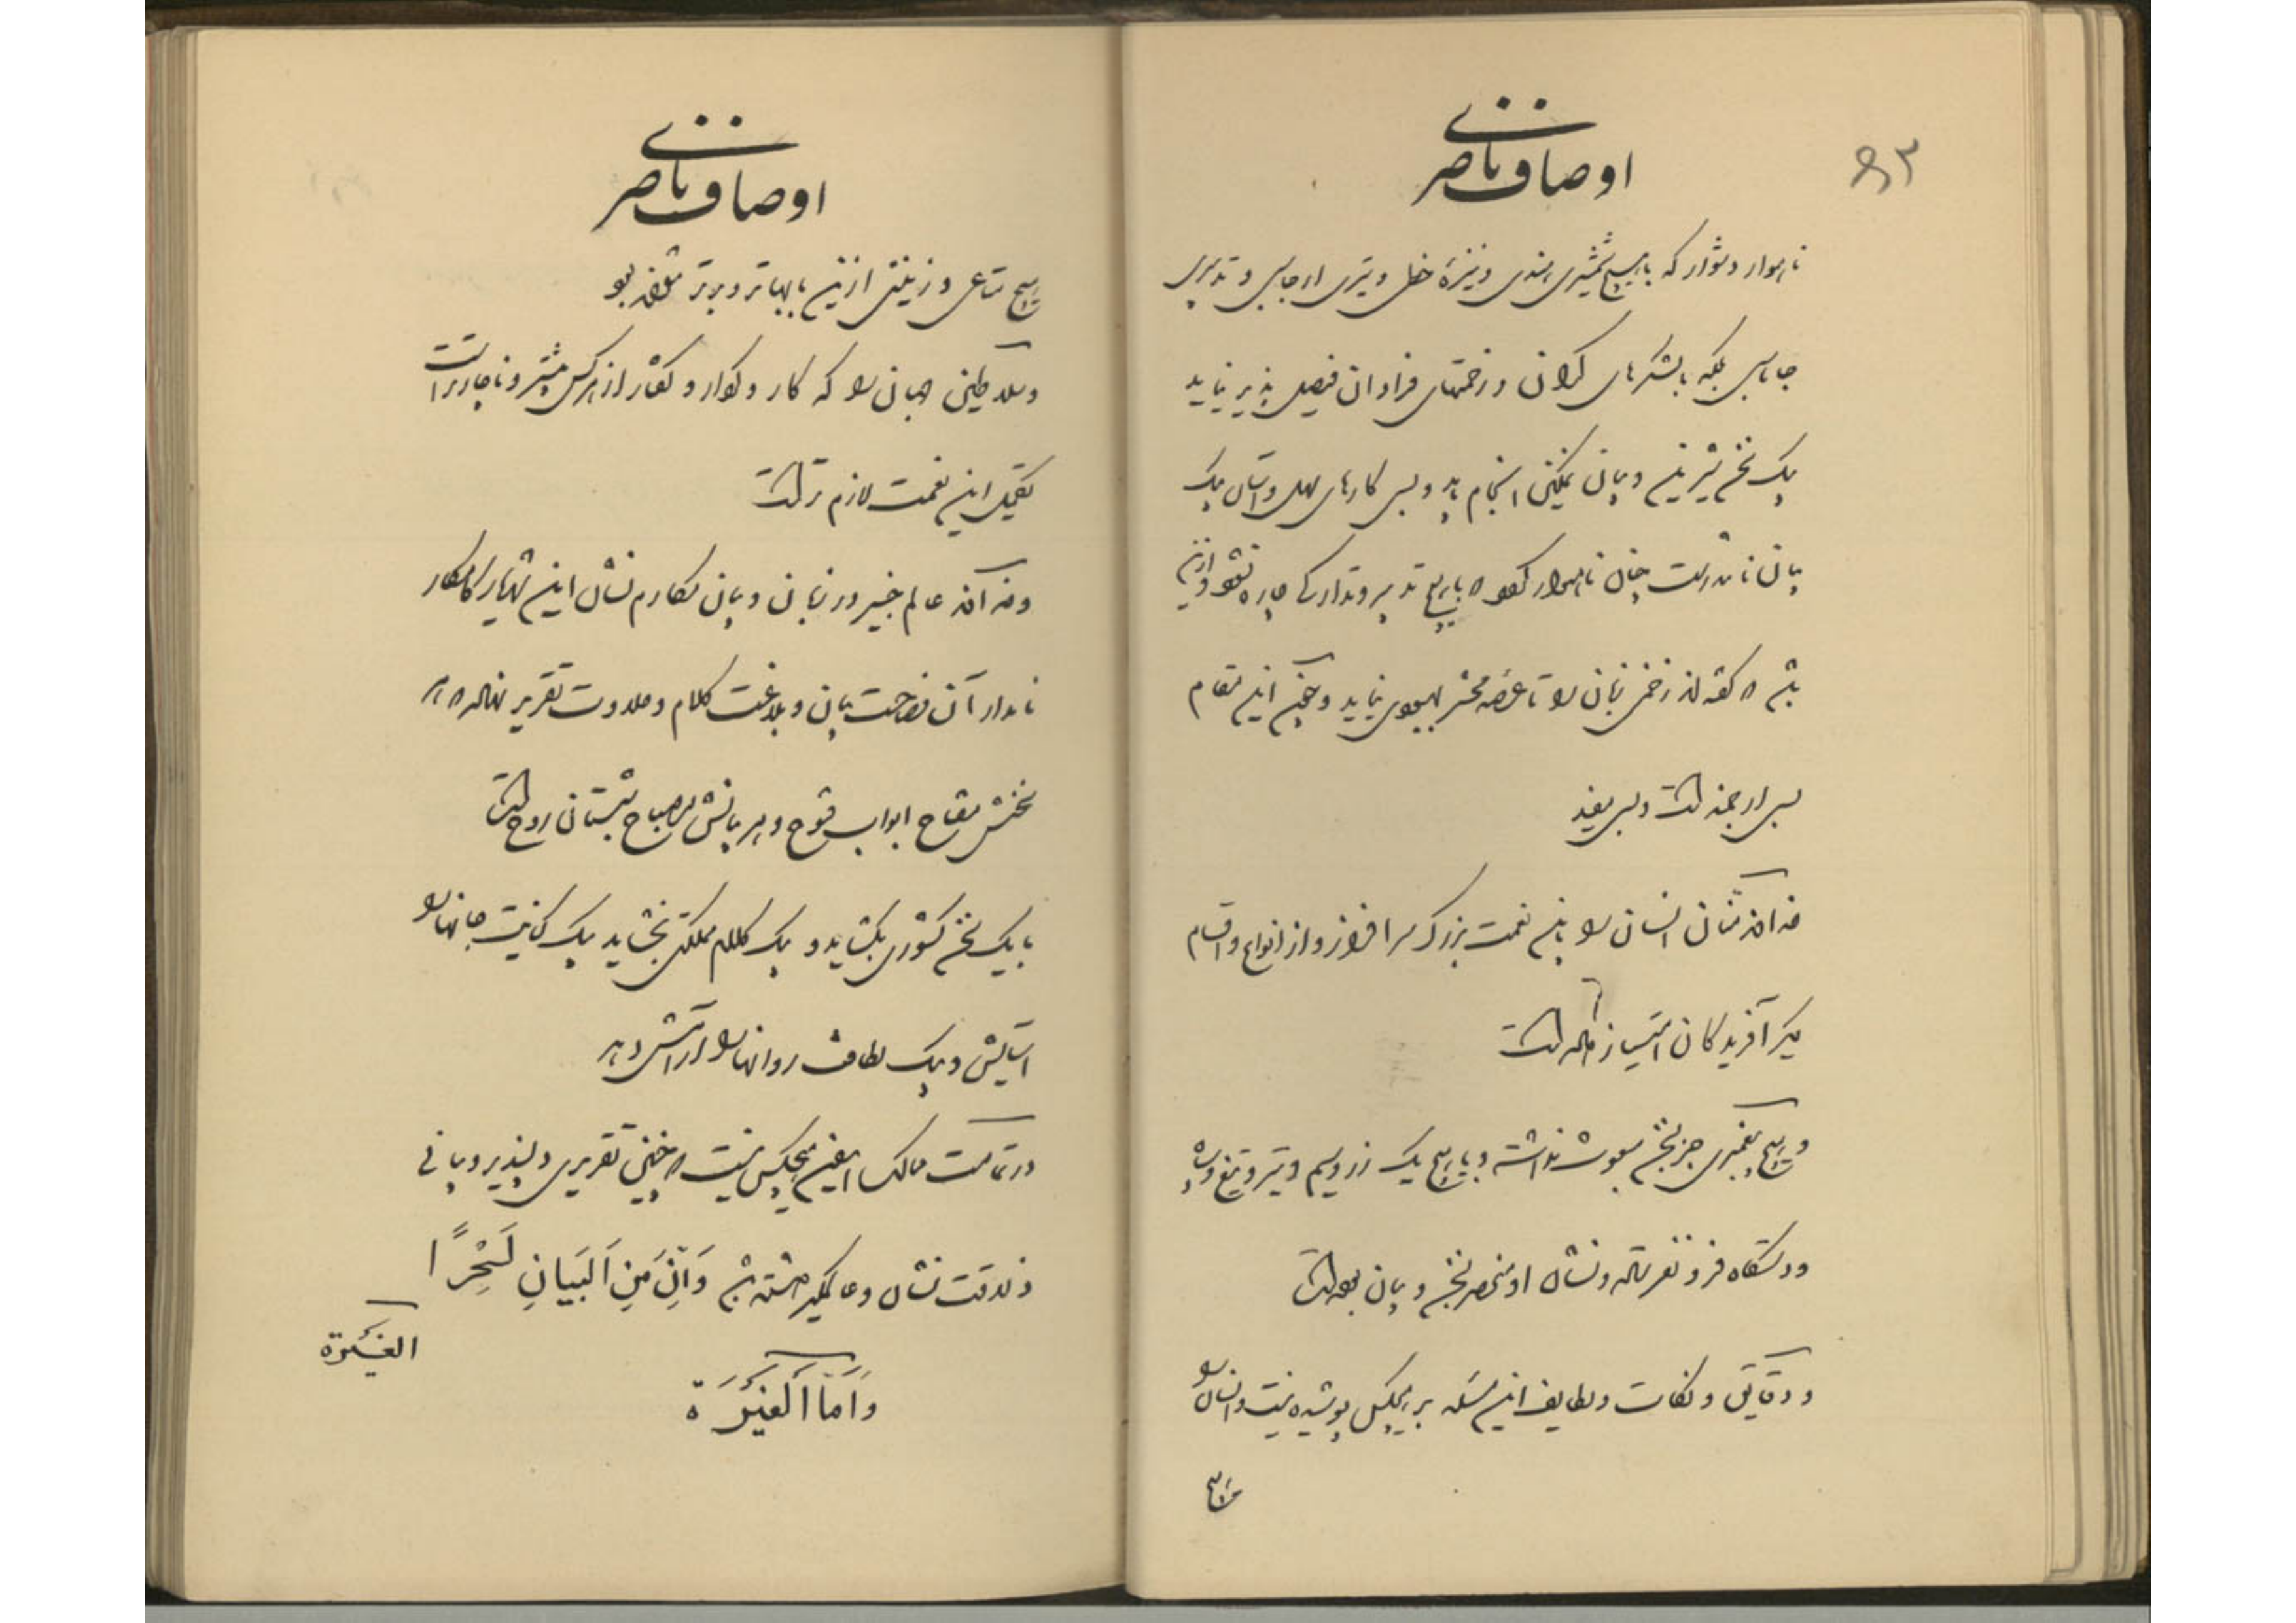 ۹۳
اوصاف ناصری
ناهموار دشوار که با هیچ شمشیری هندی و نیزهٔ خطی و تیری ارجاسبی و تدبیری
جاماسبی بلکه بالشکرهای گران و زخمتهای فراوان فیصل پذیر نیاید
بیک سخن شیرین و بیان نمکین انجام یابد و بسی کارهای سهل و آسان بیک
بیان نادرست چنان ناهموار گردد که با هیچ تدبیر و تدارک چاره نشود و ازین
است که گفته‌اند زخم زبان را تا عرصه محشر بهبودی نیاید و سخن این مقام
بسی ارجمند است و بسی مفید
خداوند منّان انسان را باین نعمت بزرگ سرافراز و از انواع و اقسام
دیگر آفریدگان امتیاز داده است
و هیچ پیغمبری جز بسخن مبعوث نداشته و با هیچ یک زر و سیم و تیر و تیغ و سپاه
و دستگاه فرو نفرستاده و نشان او منحصر بسخن و بیان بوده است
و دقایق و نکات و لطایف این مسئله بر هیچکس پوشیده نیست و انسان را
هیچ
اوصاف ناصری
هیچ متاعی و زینتی ازین بابهاتر و برتر نخواهد بود
و سلاطین جهان را که کار و کردار و گفتار از هر کس بیشتر و ناچارتر است
تکمیل این نعمت لازم تر است
و خداوند عالم خبیر در زبان و بیان مکارم نشان این شهریار کامکار
نامدار آن فصاحت بیان و بلاغت کلام و حلاوت تقریر نهاده که هر
سخنش مفتاح ابواب فتوح و هر بیانش مصباح شبستان روح است
با یک سخن کشوری بگشاید و بیک کلام مملکتی ببخشاید بیک کنایت جانها را
آسایش و بیک لطافت روانها را آرامش دهد
در تمامت ممالک امروز هیچکس نیست که چنین تقریری دلپذیر و بیانی
ذلاقت نشان و عالمگیر داشته باشد وَاِنَّ مِنَ البَیَانِ لَسِحْرًا
الغیرة
وَاَمَّا الغَیْرَة